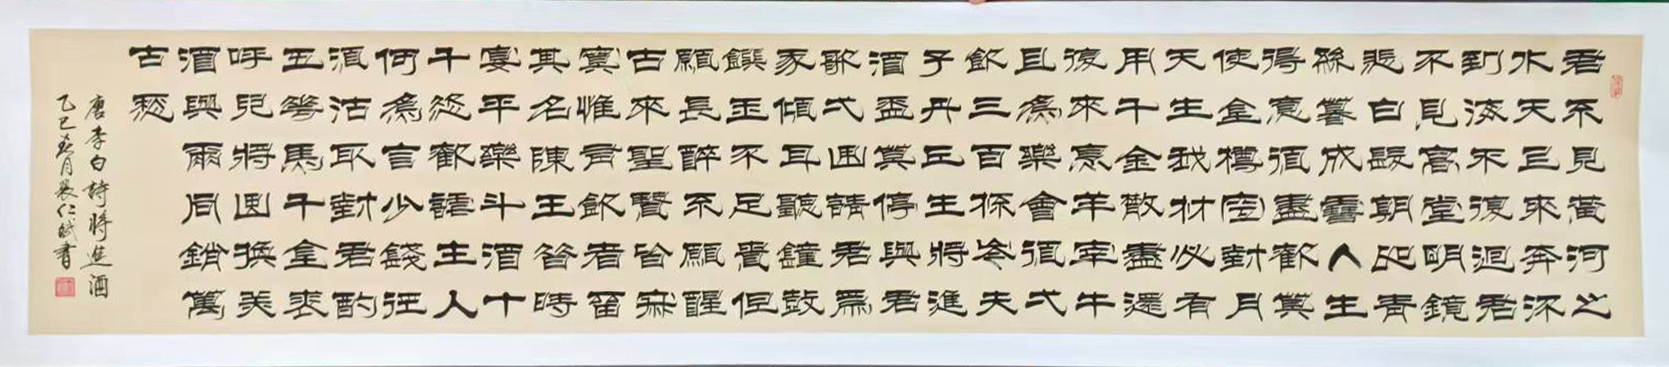 君不見黃河之
水天上來奔流
到海不復迴君
不見高堂明鏡
悲白髮朝如青
絲暮成雪人生
得意須盡歡莫
使金樽空對月
天生我材必有
用千金散盡還
復來烹羊宰牛
且為樂會須弌
飲三百杯岑夫
子丹丘生將進
酒盃莫停與君
歌弌曲請君為
我傾耳聽鐘鼓
饌玉不足貴但
願長醉不願醒
古來聖賢皆寂
寞惟有飲者留
其名陳王昔時
宴平樂斗酒十
千恣歡謔主人
何為言少錢徑
須沽取對君酌
五花馬千金裘
呼兒將出換美
酒與爾同銷萬
古愁
唐李白詩將進酒
乙巳春月仁書